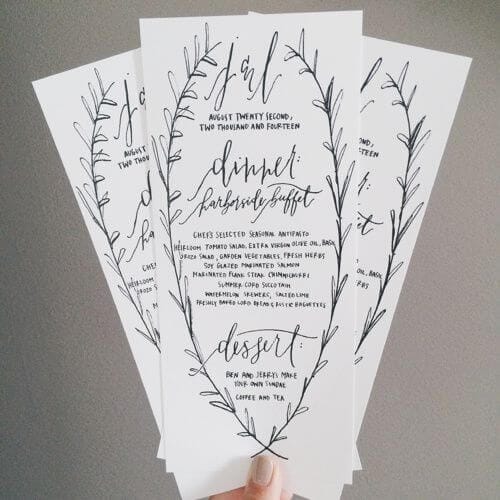 j & l
AUGUST TWENTY SECOND,
TWO THOUSAND AND FOURTEEN
dinner:
harborside buffet
CHEF'S SELECTED SEASONAL ANTIPASTO
HEIRLOOM TOMATO SALAD, EXTRA VIRGIN OLIVE OIL, BASIL
ORZO SALAD, GARDEN VEGETABLES, FRESH HERBS
SOY GLAZED MARINATED SALMON
MARINATED FLANK STEAK CHIMMICHURRI
SUMMER CORN SUCCOTAIH
WATERMELON SKEWERS, SALTED LIME
FRESHLY BAKED CORN BREAD & RUSTIC BAGUETTES
dessert:
BEN AND JERRY'S MAKE
YOUR OWN SUNDAE
COFFEE AND TEA